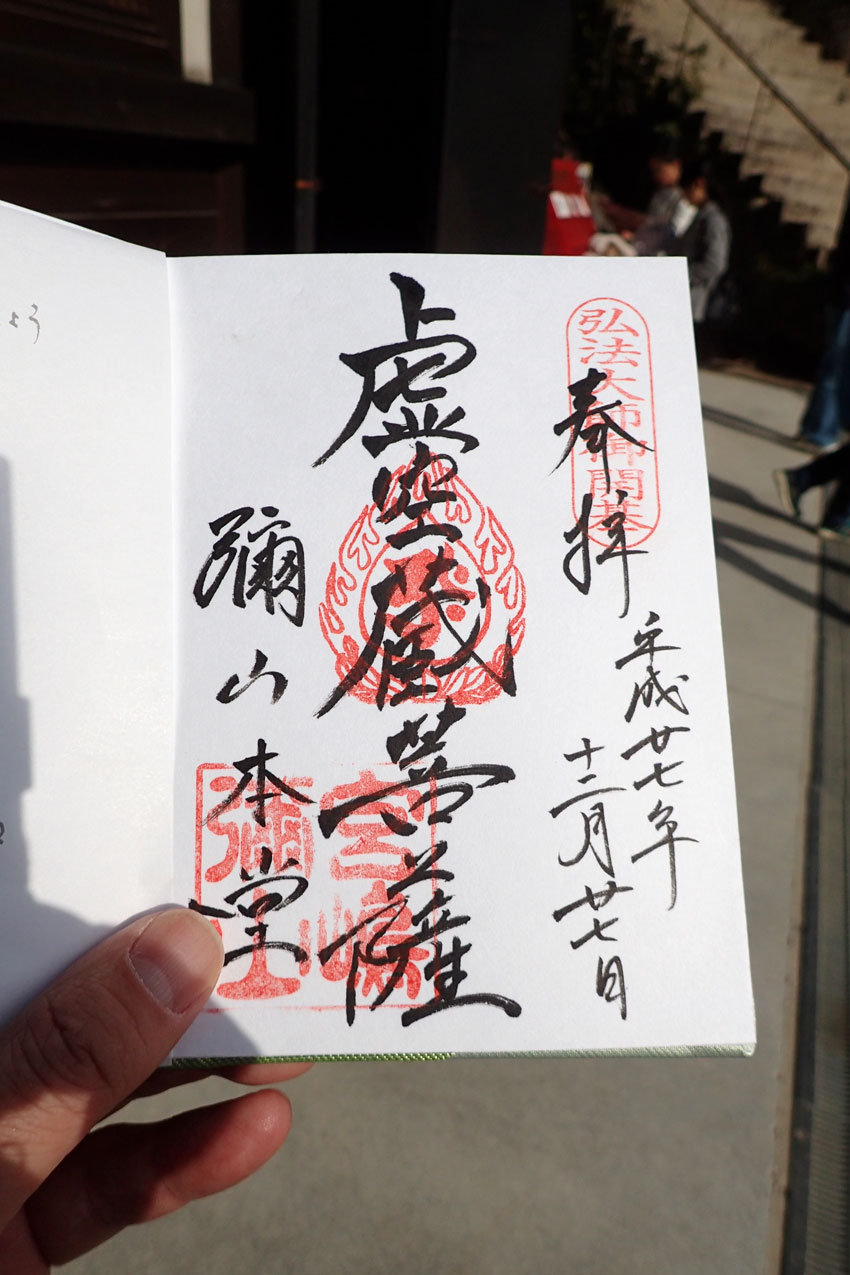 弘法大師御開基
奉拝
平成廿七年
十二月廿七日
虚空蔵菩薩
彌山本堂
宮嶋
彌山
よう